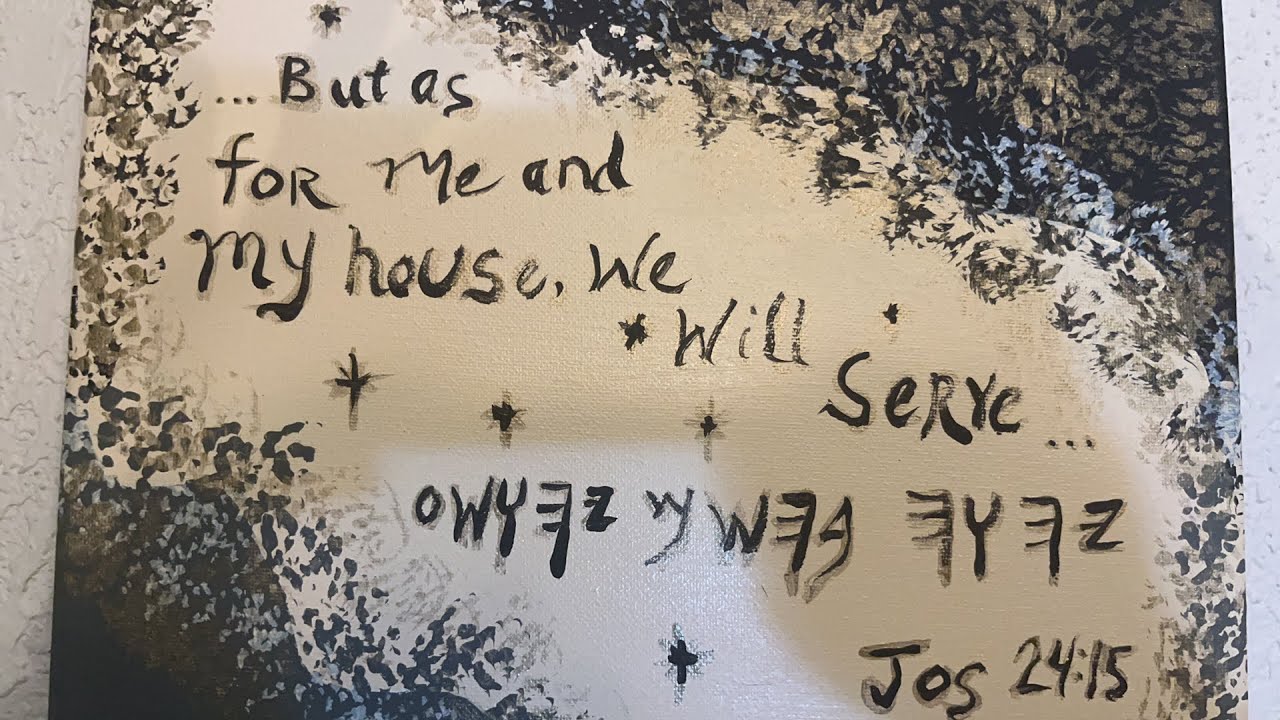 ... But as
for Me and
My house, We
Will
Serve ...
𐤉𐤄𐤅𐤄 𐤁𐤄𐤔𐤌 𐤉𐤄𐤅𐤔𐤏
Jos 24:15